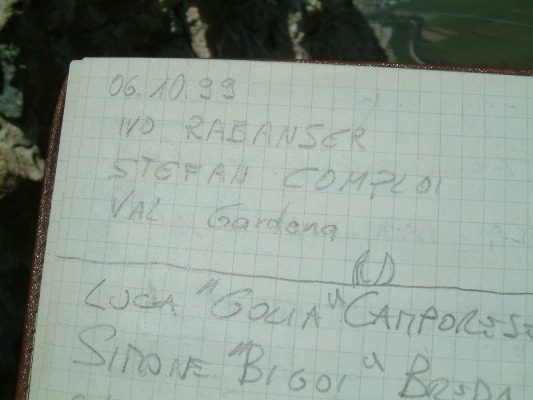 06.10.99
IVO RABANSER
STEFAN COMPLOI
VAL Gardena
LUCA "GOLIA" CAMPORESE
SIMONE "BIGOI" BREDA